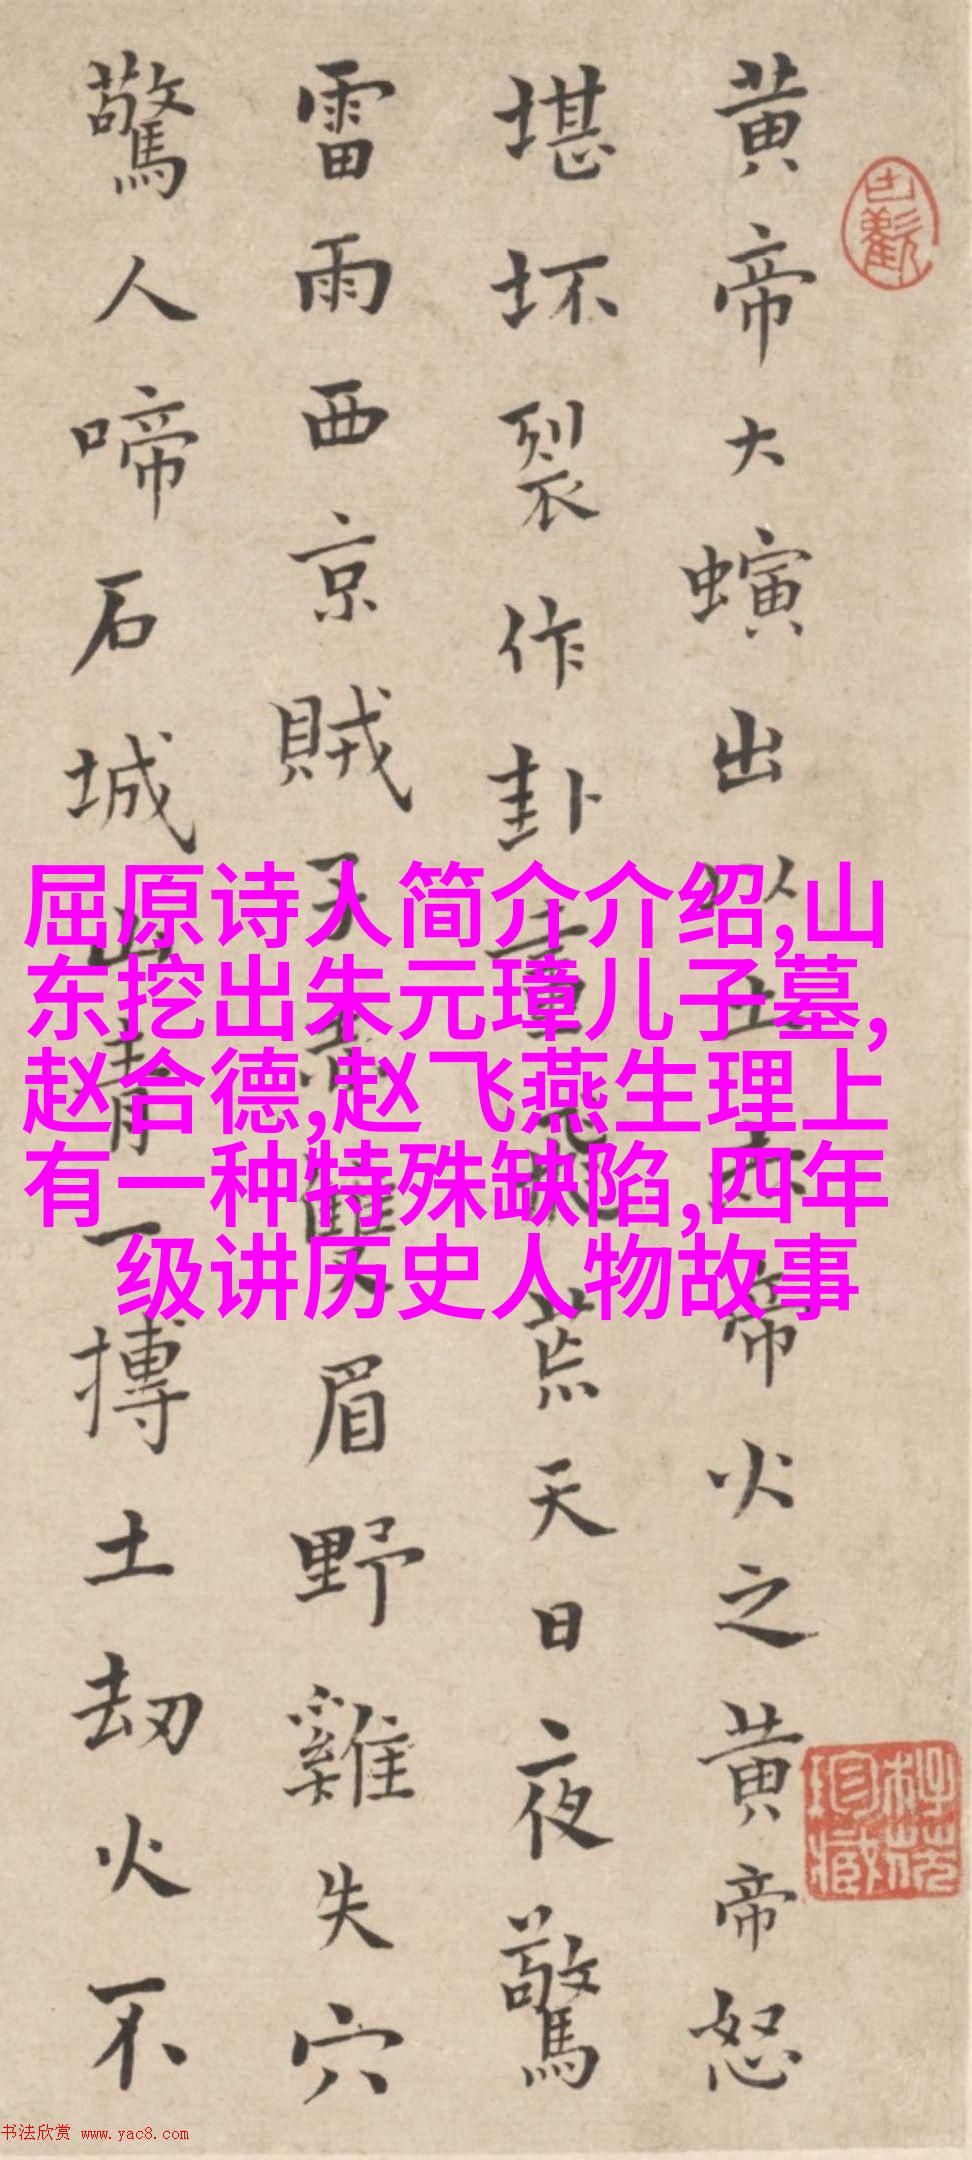 黄帝大螾出
帝火之黄帝怒
堪坏裂作卦
荒天日夜驚
雷雨西京賊
眉野雞失穴
驚人啼石城
山青一摶土劫火不
屈原诗人简介介绍,山
东挖出朱元璋儿子墓,
赵合德,赵飞燕生理上
有一种特殊缺陷,四年
级讲历史人物故事
书法欣赏 www.yac8.com